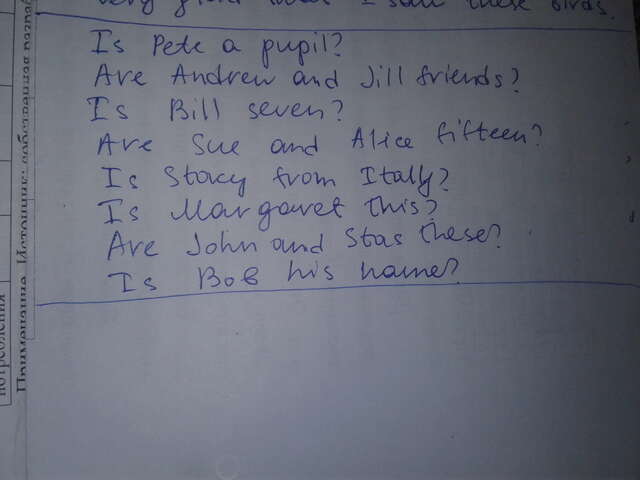 потребления
Примечание. Источник: собственная
these birds.
Is Pete a pupil?
Are Andrew and Jill friends?
Is Bill seven?
Are Sue and Alice fifteen?
Is Stacy from Italy?
Is Margaret this?
Are John and Stas these?
Is Bob his name?